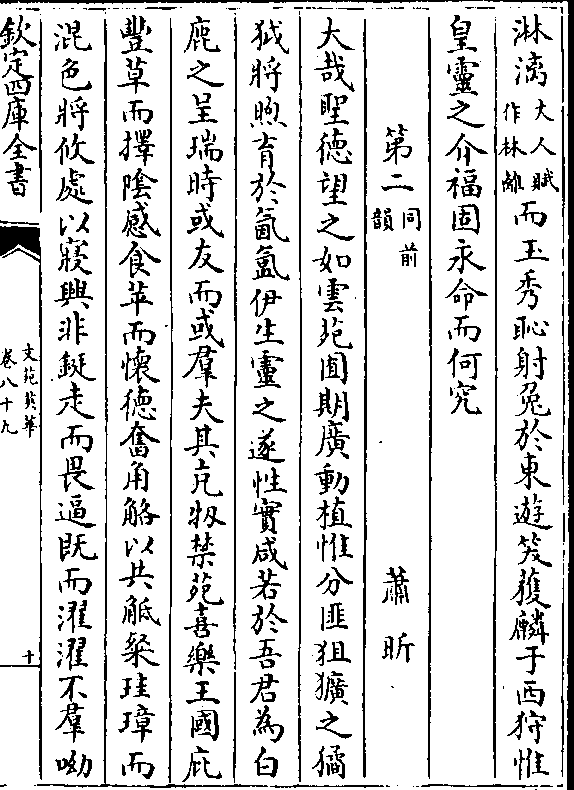 淋漓大人賦作林離而玉秀恥射兔於東遊笑獲麟于西狩惟
皇靈之介福固永命而何究
第二同前韻 蕭昕
大哉聖德望之如雲苑囿期廣動植惟分匪狙獷之獝
狘將煦育於氤氲伊生靈之遂性實咸若於吾君為白
鹿之呈瑞時或友而或羣夫其充牣禁苑喜樂王國庇
豐草而擇陰感食苹而懷德奮角觡以共觝粲珪璋而
混色將攸處以寢興非鋌走而畏逼既而濯濯不羣呦
欽定四庫全書
文苑英華
卷八十九
十